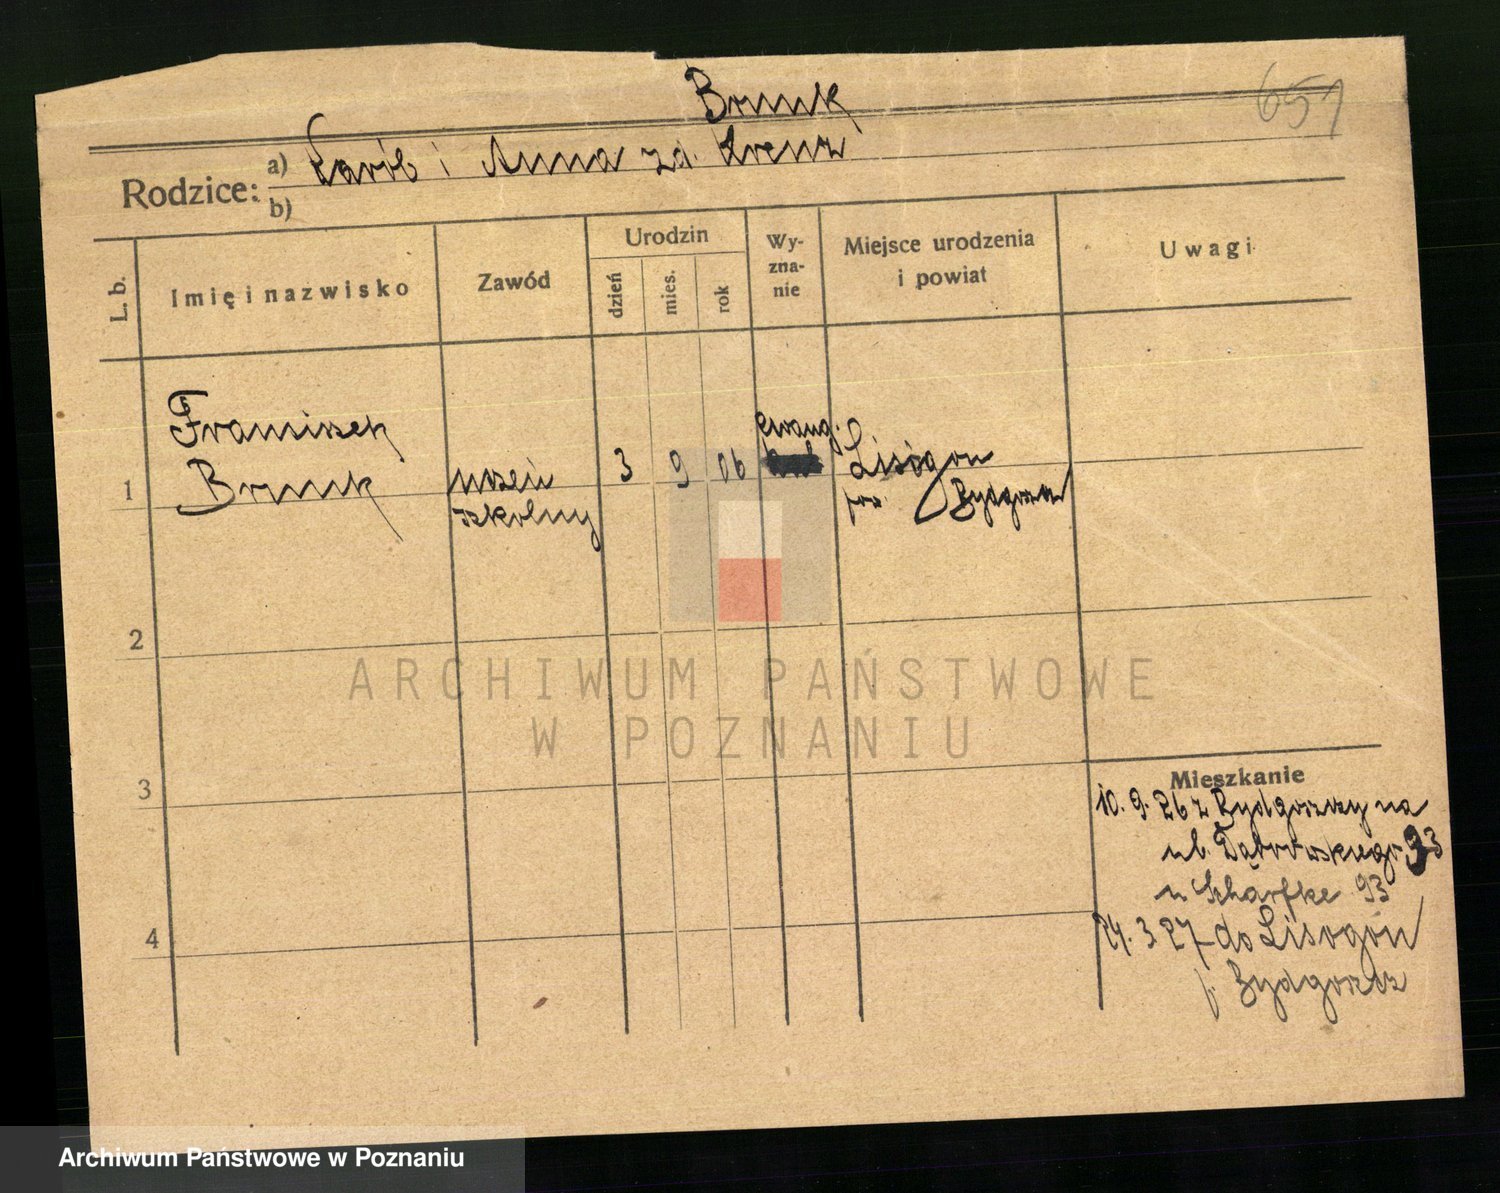 Brunk
651
Rodzice: a) Karól i Anna zd. Krenz
b)
L. b.
Imię i nazwisko
Zawód
Urodzin
dzień
mies.
rok
Wy-
zna-
nie
Miejsce urodzenia
i powiat
Uwagi
1
Franciszek
Brunk
uczeń
szkolny
3
9
06
ewang.
Lisogon
pow. Bydgoszcz
2
3
4
Mieszkanie
10. 9. 26 z Bydgoszczy na
ul. Dąbrowskiego 93
u Scharfke 93
24. 3 27 do Lisogon
p. Bydgoszcz
ARCHIWUM PAŃSTWOWE
W POZNANIU
Archiwum Państwowe w Poznaniu